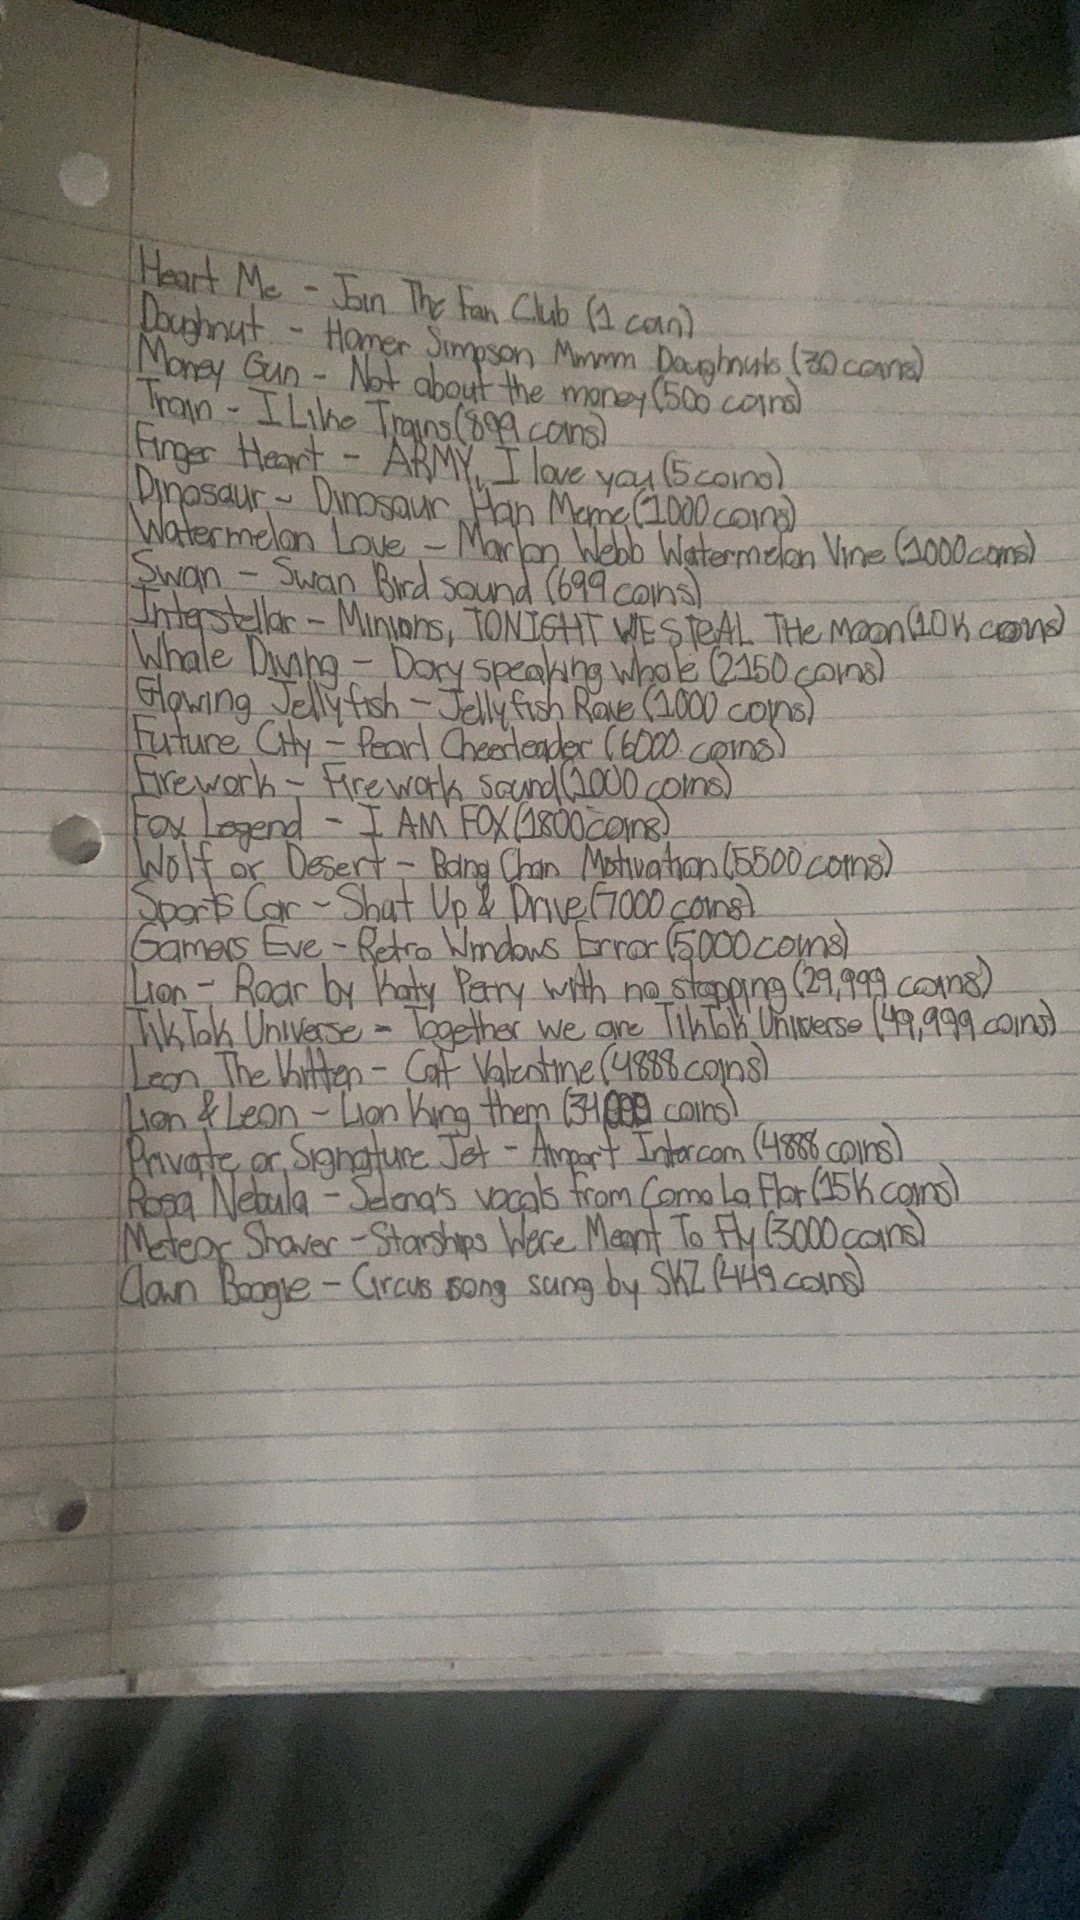 Heart Me - Join The Fan Club (1 coin)
Doughnut - Homer Simpson Mmmm Doughnuts (30 coins)
Money Gun - Not about the money (500 coins)
Train - I Like Trains (899 coins)
Finger Heart - ARMY, I love you (5 coins)
Dinosaur - Dinosaur Han Meme (1000 coins)
Watermelon Love - Marlon Webb Watermelon Vine (1000 coins)
Swan - Swan Bird sound (699 coins)
Interstellar - Minions, TONIGHT WE STEAL THE Moon (10K coins)
Whale Diving - Dory speaking whale (2150 coins)
Glowing Jellyfish - Jellyfish Rave (1000 coins)
Future City - Pearl Cheerleader (6000 coins)
Firework - Firework sound (1000 coins)
Fox Legend - I AM FOX (1800 coins)
Wolf or Desert - Bang Chan Motivation (5500 coins)
Sports Car - Shut Up & Drive (7000 coins)
Gamers Eve - Retro Windows Error (5000 coins)
Lion - Roar by Katy Perry with no stopping (29,999 coins)
TikTok Universe - Together we are TikTok Universe (49,999 coins)
Leon The Kitten - Cat Valentine (4888 coins)
Lion & Leon - Lion King them (34,000 coins)
Private or Signature Jet - Airport Intercom (4888 coins)
Rosa Nebula - Selena's vocals from Como La Flor (15K coins)
Meteor Shower - Starships Were Meant To Fly (3000 coins)
Clown Boogie - Circus song sung by SKZ (449 coins)